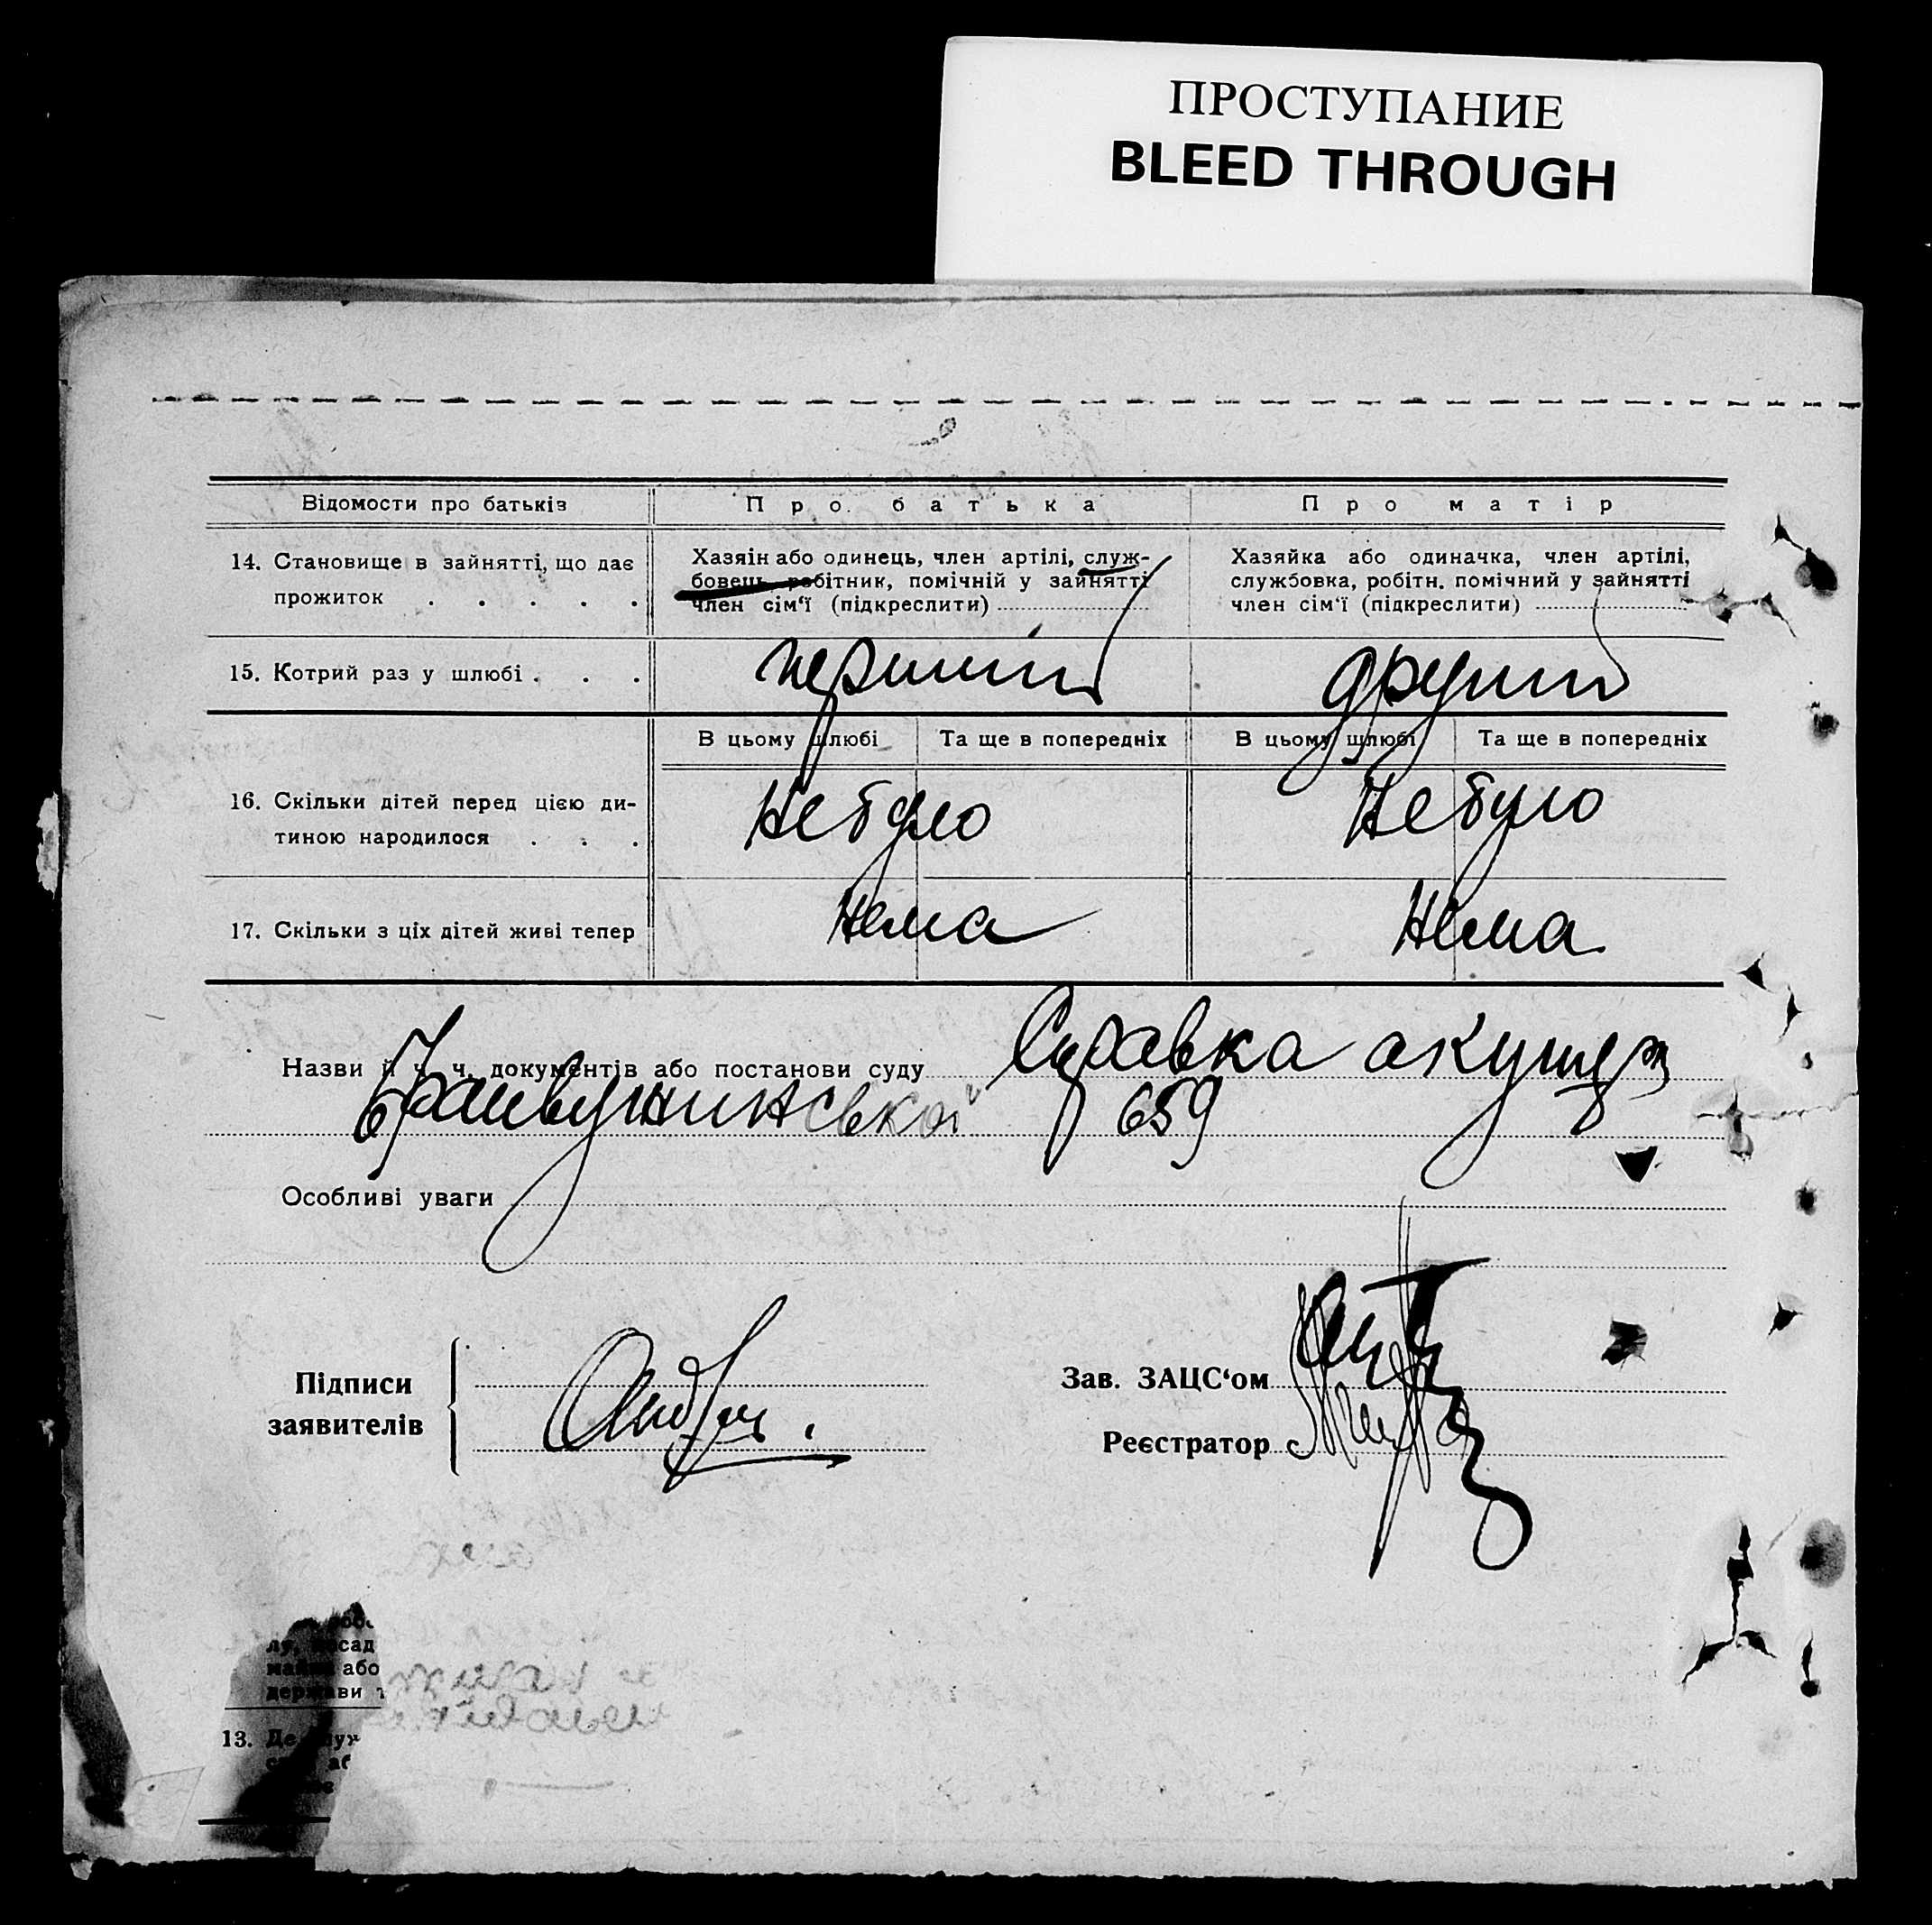 ПРОСТУПАНИЕ
BLEED THROUGH
Відомости про батьків Про батька Про матір
14. Становище в зайнятті, що дає прожиток . . . . .
Хазяін або одинець, член артілі, служ-
бовець, робітник, помічній у зайнятті
член сім'ї (підкреслити)
Хазяйка або одиначка, член артілі,
службовка, робітн. помічний у зайнятті
член сім'ї (підкреслити)
15. Котрий раз у шлюбі . . . перший другий
В цьому шлюбі Та ще в попередніх В цьому шлюбі Та ще в попередніх
16. Скільки дітей перед цією ди-
тиною народилося . . . Не було Не було
17. Скільки з ціх дітей живі тепер Нема Нема
Назви й ч. ч. документів або постанови суду Справка акушера
659
Особливі уваги
Підписи
заявителів
Зав. ЗАЦС‘ом
Реєстратор
лу, посад
майна або
держави
13. Де служ